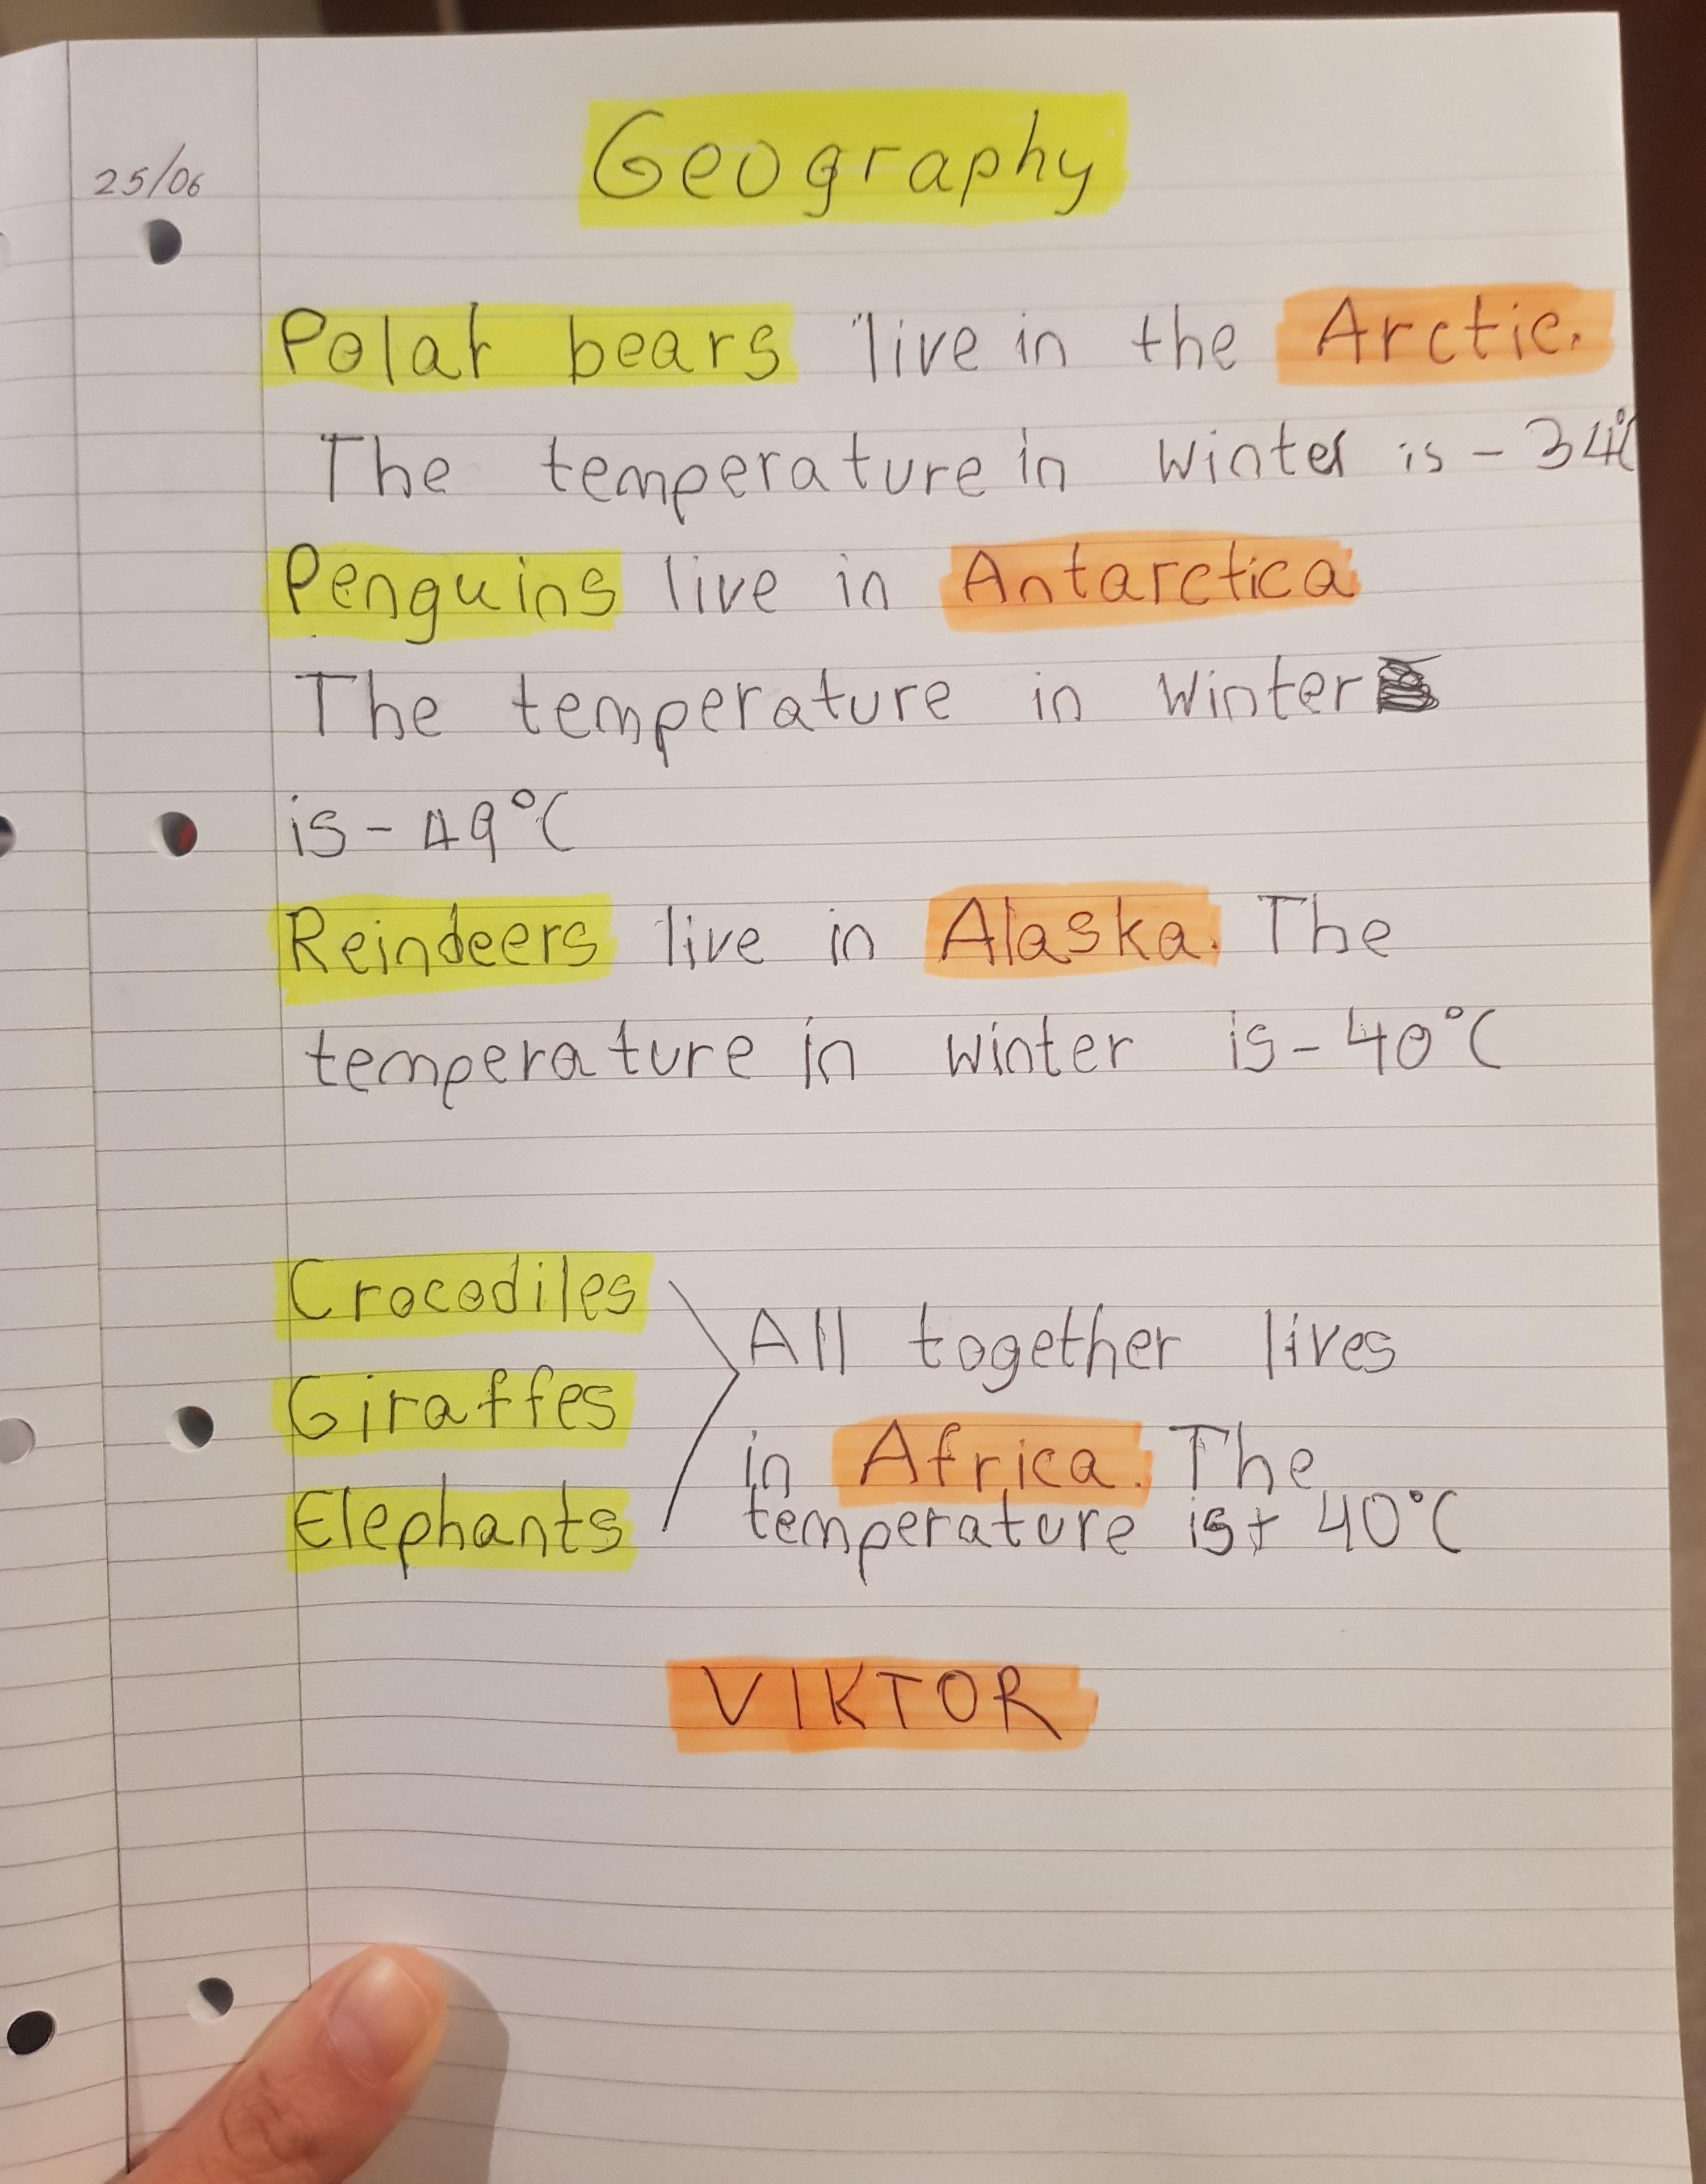 Geography
25/06
Polar bears live in the Arctic.
The temperature in winter is - 34°C
Penguins live in Antarctica
The temperature in winter
is - 49°C
Reindeers live in Alaska. The
temperature in winter is - 40°C
Crocodiles
Giraffes
Elephants
All together lives
in Africa. The
temperature is + 40°C
VIKTOR